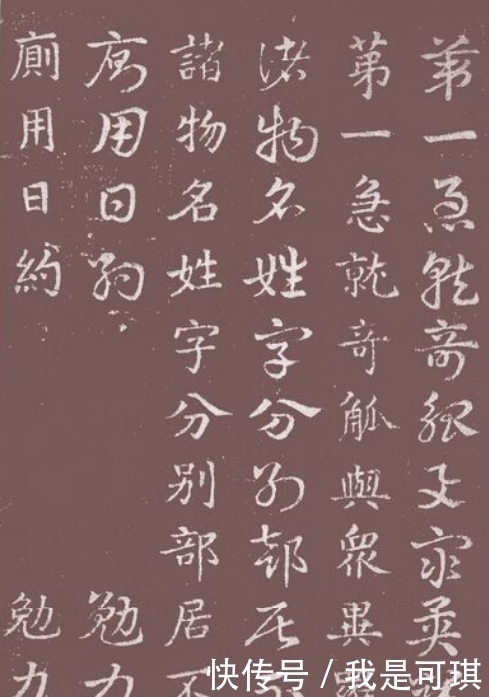 第一急就奇觚與衆異
第一急就奇觚與衆異
諸物名姓字分别部居
諸物名姓字分别部居不
廁用日約 勉力
廁用日約 勉力
快传号 / 我是可琪